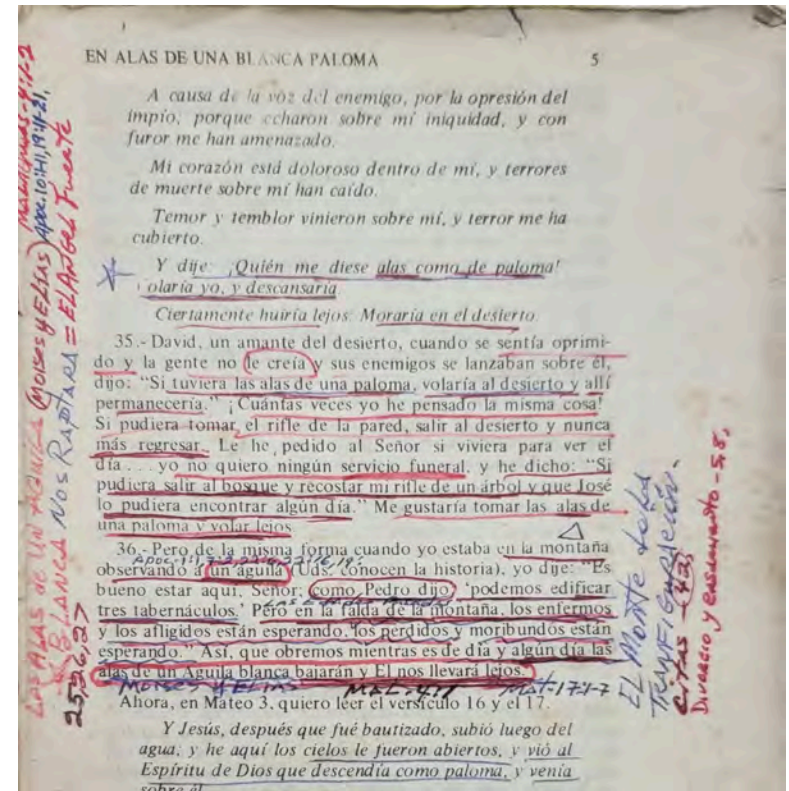 EN ALAS DE UNA BLANCA PALOMA 5
A causa de la voz del enemigo, por la opresión del
impío; porque echaron sobre mí iniquidad, y con
furor me han amenazado.
Mi corazón está doloroso dentro de mí, y terrores
de muerte sobre mí han caído.
Temor y temblor vinieron sobre mí, y terror me ha
cubierto.
Y dije: ¡Quién me diese alas como de paloma!
olaría yo, y descansaría
Ciertamente huiría lejos: Moraría en el desierto.
35.- David, un amante del desierto, cuando se sentía oprimi-
do y la gente no le creía y sus enemigos se lanzaban sobre él,
dijo: “Si tuviera las alas de una paloma, volaría al desierto y allí
permanecería.” ¡Cuántas veces yo he pensado la misma cosa!
Si pudiera tomar el rifle de la pared, salir al desierto y nunca
más regresar. Le he pedido al Señor si viviera para ver el
día . . . yo no quiero ningún servicio funeral, y he dicho: “Si
pudiera salir al bosque y recostar mi rifle de un árbol y que José
lo pudiera encontrar algún día.” Me gustaría tomar las alas de
una paloma y volar lejos
36.- Pero de la misma forma cuando yo estaba en la montaña
observando a un águila (Uds. conocen la historia), yo dije: “Es
bueno estar aquí, Señor; como Pedro dijo, ‘podemos edificar
tres tabernáculos.’ Pero en la falda de la montaña, los enfermos
y los afligidos están esperando, los perdidos y moribundos están
esperando.” Así, que obremos mientras es de día y algún día las
alas de un Aguila blanca bajarán y El nos llevará lejos.
MOISES Y ELIAS MAL:4:1 Mat:17:1-7
Ahora, en Mateo 3, quiero leer el versículo 16 y el 17.
Y Jesús, después que fué bautizado, subió luego del
agua; y he aquí los cielos le fueron abiertos, y vió al
Espíritu de Dios que descendía como paloma, y venía
sobre él
LAS ALAS de UN AQUILA (MOISES Y ELIAS) Apoc.10:1-11,19:11-21,
BLANCA NOS RAPTARA = EL ANGEL Fuerte
25,26,27
EL MONTE
TRANFIGURACION.
CITAS - (42)
Divorcio y casamiento - 58,